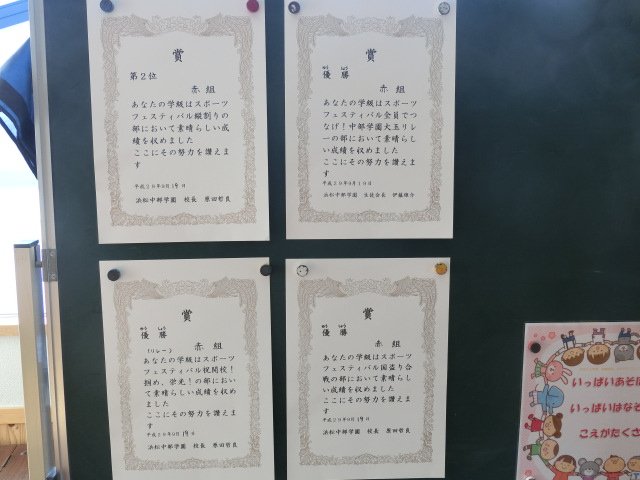 賞
第2位
赤組
あなたの学級はスポーツ
フェスティバル縦割りの
部において素晴らしい成
績を収めました
ここにその努力を讃えま
す
平成29年9月19日
浜松中部学園 校長 原田哲良
賞
ゆう しょう
優勝
赤組
あなたの学級はスポーツ
フェスティバル全員でつ
なげ!中部学園大玉リレ
ーの部において素晴らし
い成績を収めました
ここにその努力を讃えま
す
平成29年9月19日
浜松中部学園 生徒会長 伊藤
賞
ゆう しょう
優勝
(リレー) 赤組
あなたの学級はスポーツ
フェスティバル祝開校!
掴め、栄光!の部におい
て素晴らしい成績を収め
ました
ここにその努力を讃えま
す
平成29年9月19日
浜松中部学園 校長 原田哲良
賞
ゆう しょう
優勝
赤組
あなたの学級はスポーツ
フェスティバル国盗り合
戦の部において素晴らし
い成績を収めました
ここにその努力を讃えま
す
平成29年9月19日
浜松中部学園 校長 原田哲良
いっぱいあそ
いっぱいはな
こえがたくさ